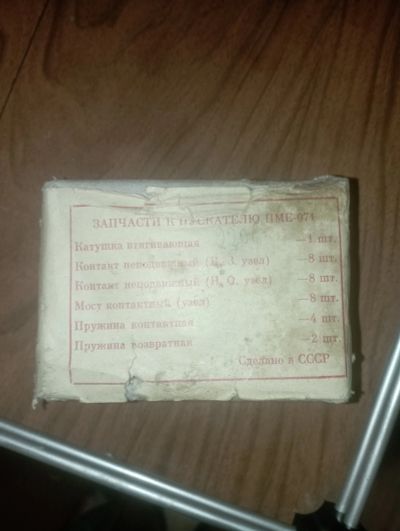 ЗАПЧАСТИ К ПУСКАТЕЛЮ ПМЕ-071
Катушка втягивающая —1 шт.
Контакт неподвижный (Н. З. узел) —8 шт.
Контакт неподвижный (Н. О. узел) —8 шт.
Мост контактный (узел) —8 шт.
Пружина контактная —4 шт.
Пружина возвратная —2 шт.
Сделано в СССР